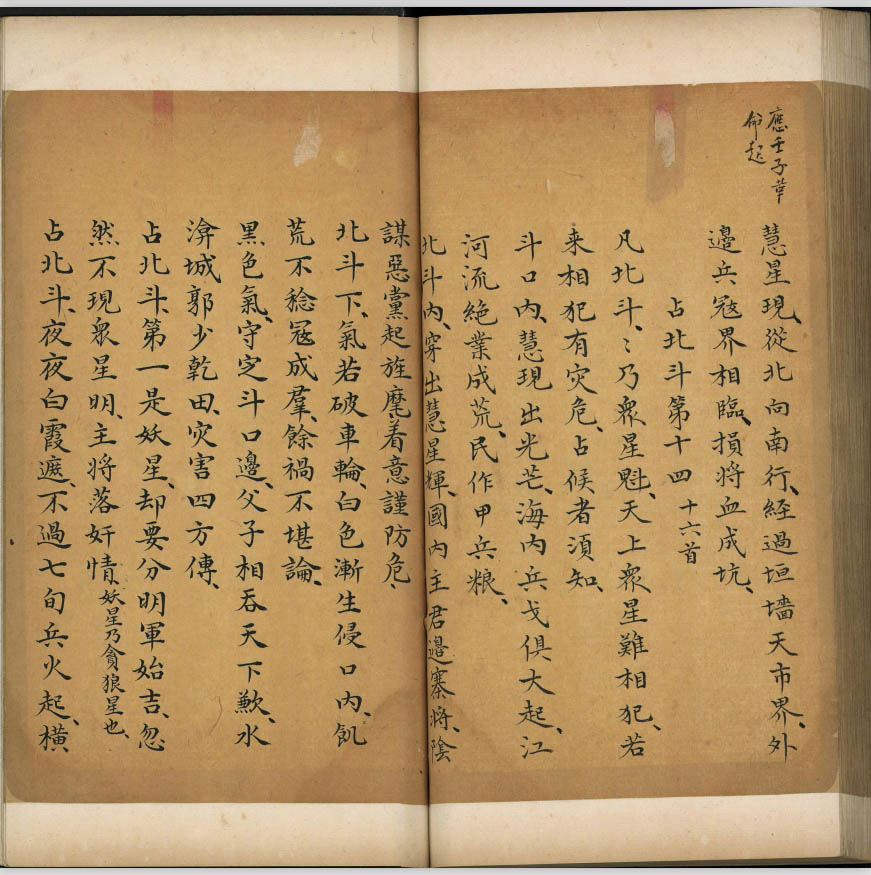 應壬子華
命起
慧星現、從北向南行、經過垣墻天市界、外
邊兵寇界相臨、損將血成坑、
占北斗第十四 十六首
凡北斗、〻乃衆星魁、天上衆星難相犯、若
来相犯有灾危、占候者須知、
斗口內、慧現出光芒、海內兵戈俱大起、江
河流絶業成荒、民作甲兵粮、
北斗內、穿出慧星輝、國內主君邉寨將、陰
謀惡黨起旌麾、着意謹防危、
北斗下、氣若破車輪、白色漸生侵口內、飢
荒不稔冦成羣、餘禍不堪論、
黑色氣、守定斗口邊、父子相吞天下歉、水
渰城郭少乾田、灾害四方傳、
占北斗、第一是妖星、却要分明軍始吉、忽
然不現衆星明、主將落奸情、妖星乃貪狼星也、
占北斗、夜夜白霞遮、不過七旬兵火起、橫